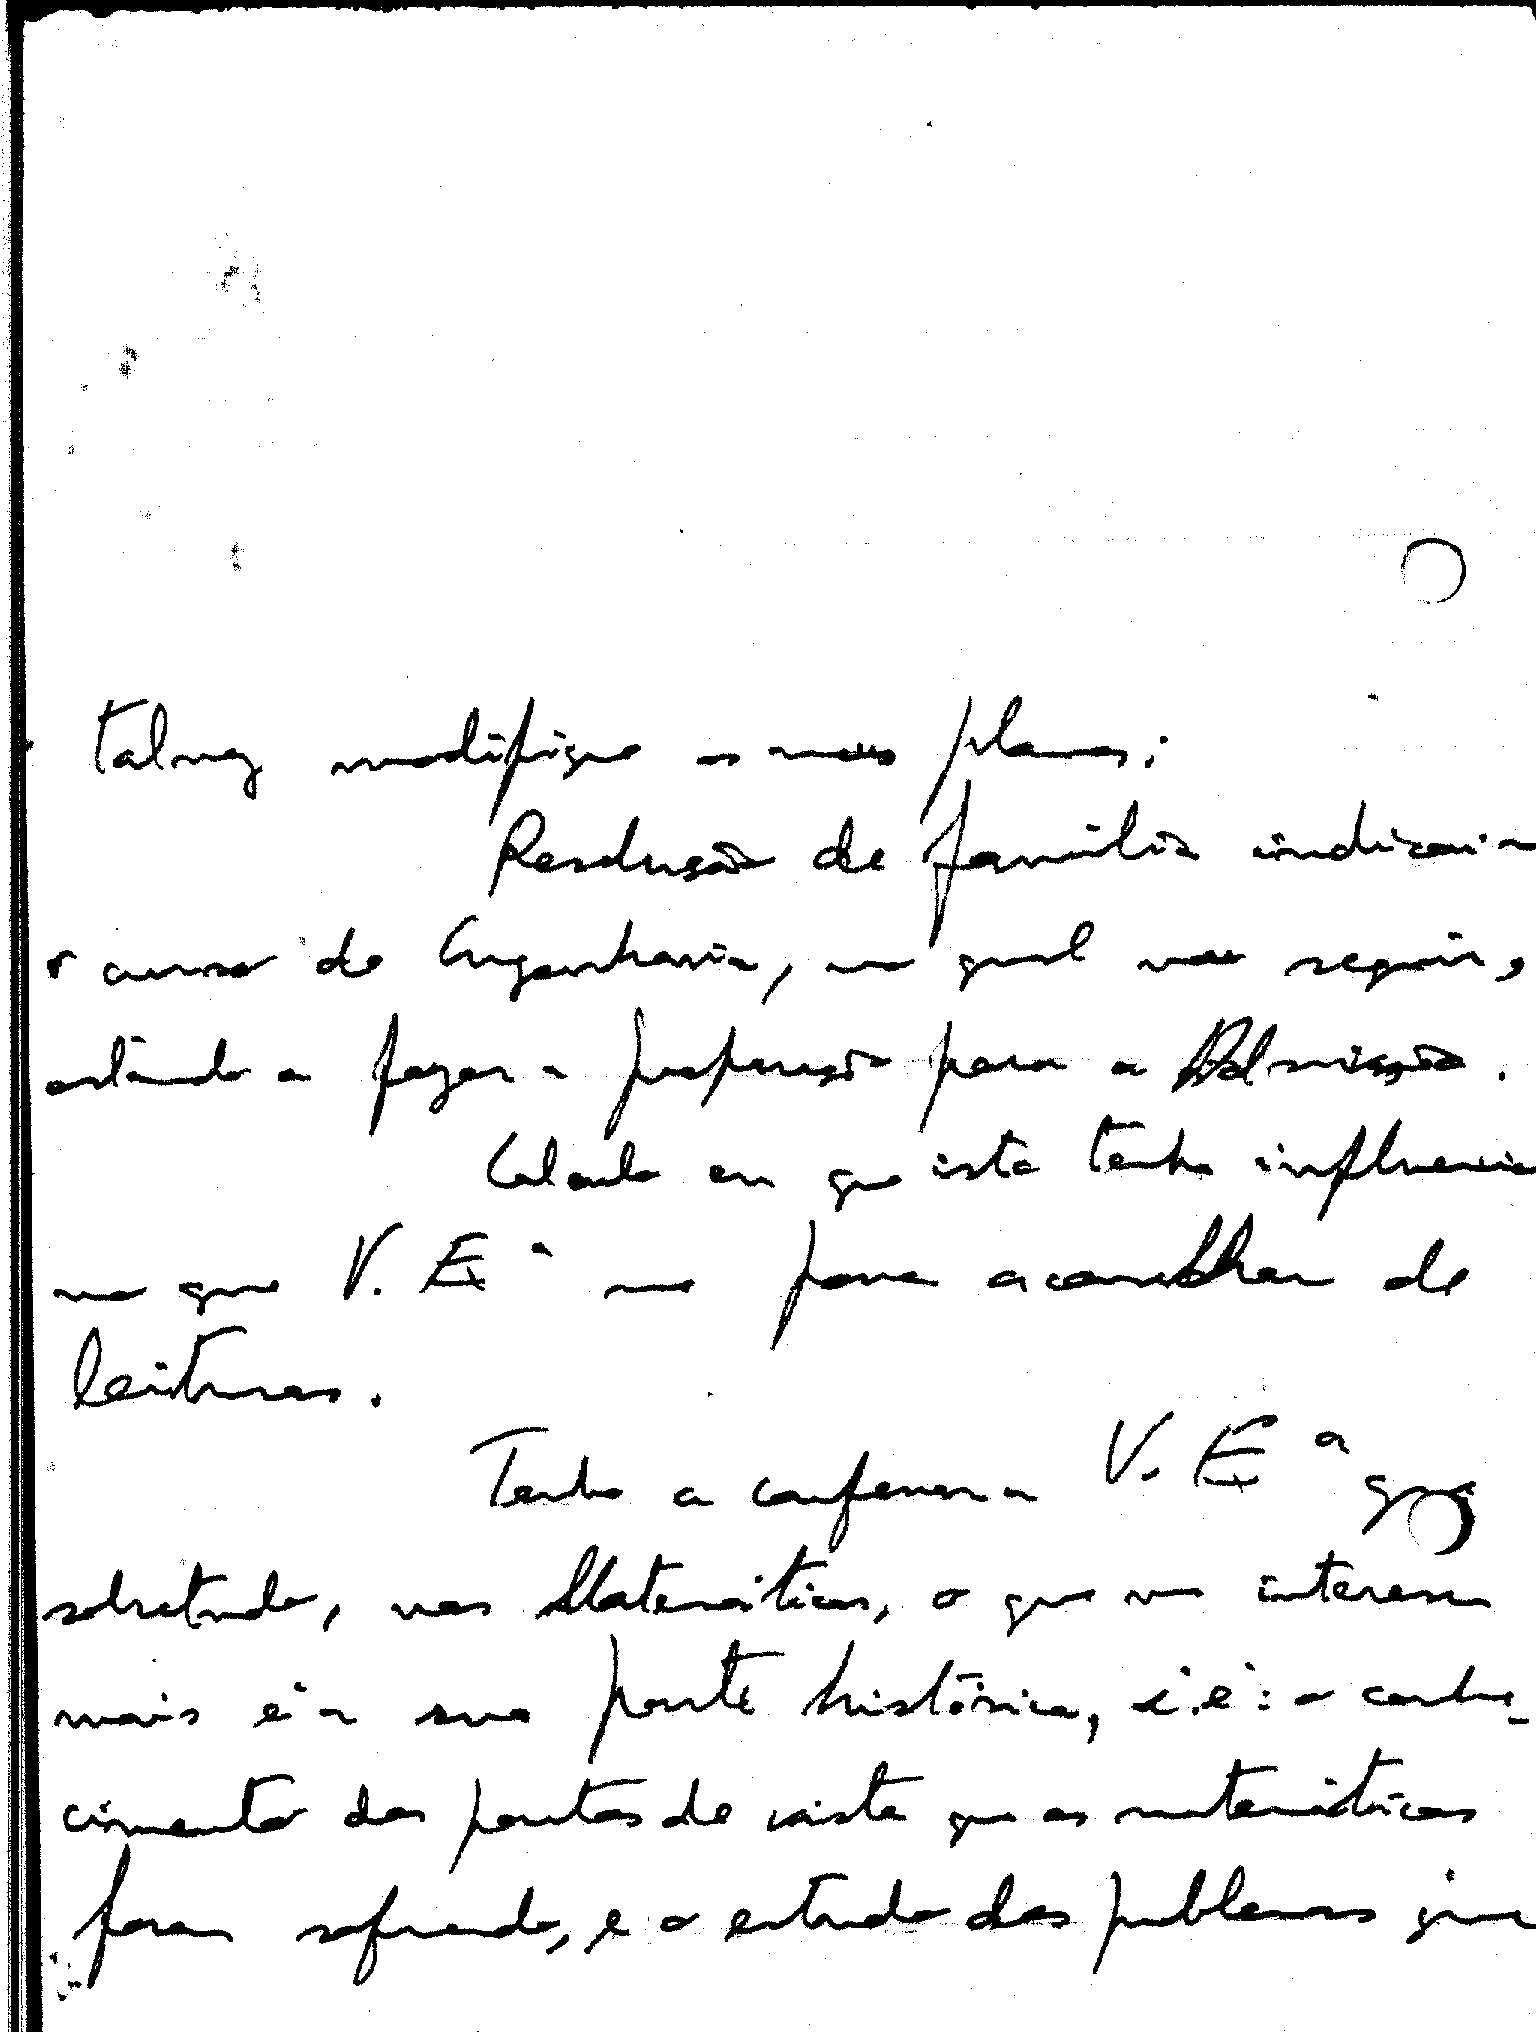 talvez modifique os meus planos:
Resolução de família indicou-me
o curso de Engenharia, no qual vou seguir,
estando a fazer a preparação para a Admissão.
Calculo em que isto tenha influencia
no que V. Eª me possa aconselhar de
leituras.
Tenho a confessar a V. Eª que
sobretudo, nas Matemáticas, o que me interessa
mais é a sua parte histórica, i.é: o conhe-
cimento dos pontos de vista que as matemáticas
foram sofrendo, e o estudo dos problemas que